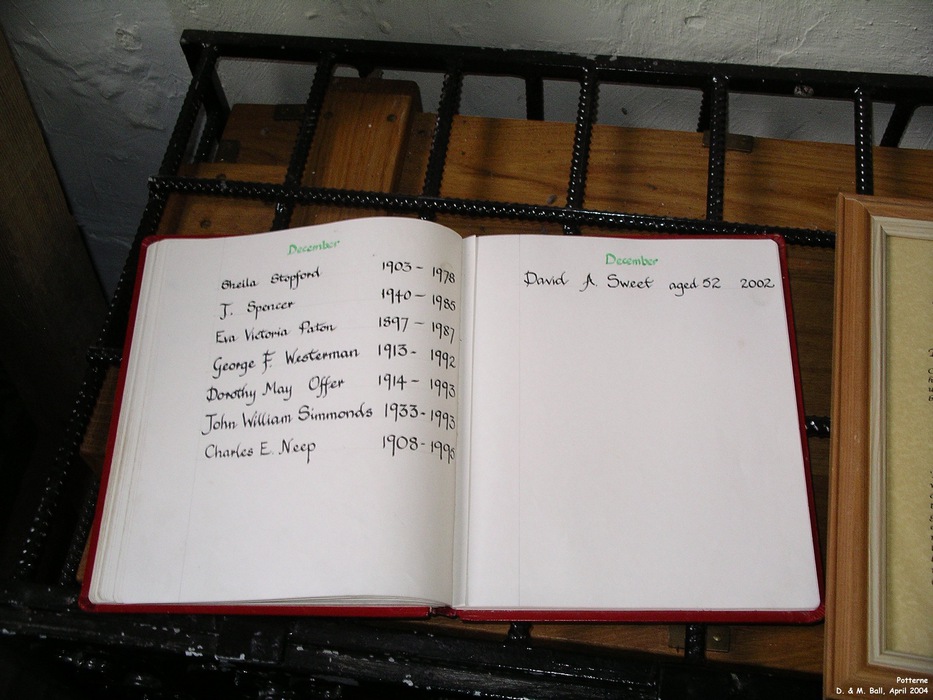 December
Sheila Stopford 1903 - 1978
J. Spencer 1940 - 1985
Eva Victoria Paton 1897 - 1987
George F. Westerman 1913 - 1992
Dorothy May Offer 1914 - 1993
John William Simmonds 1933 - 1993
Charles E. Neep 1908 - 1995
December
David A. Sweet aged 52 2002
Potterne
D. & M. Ball, April 2004